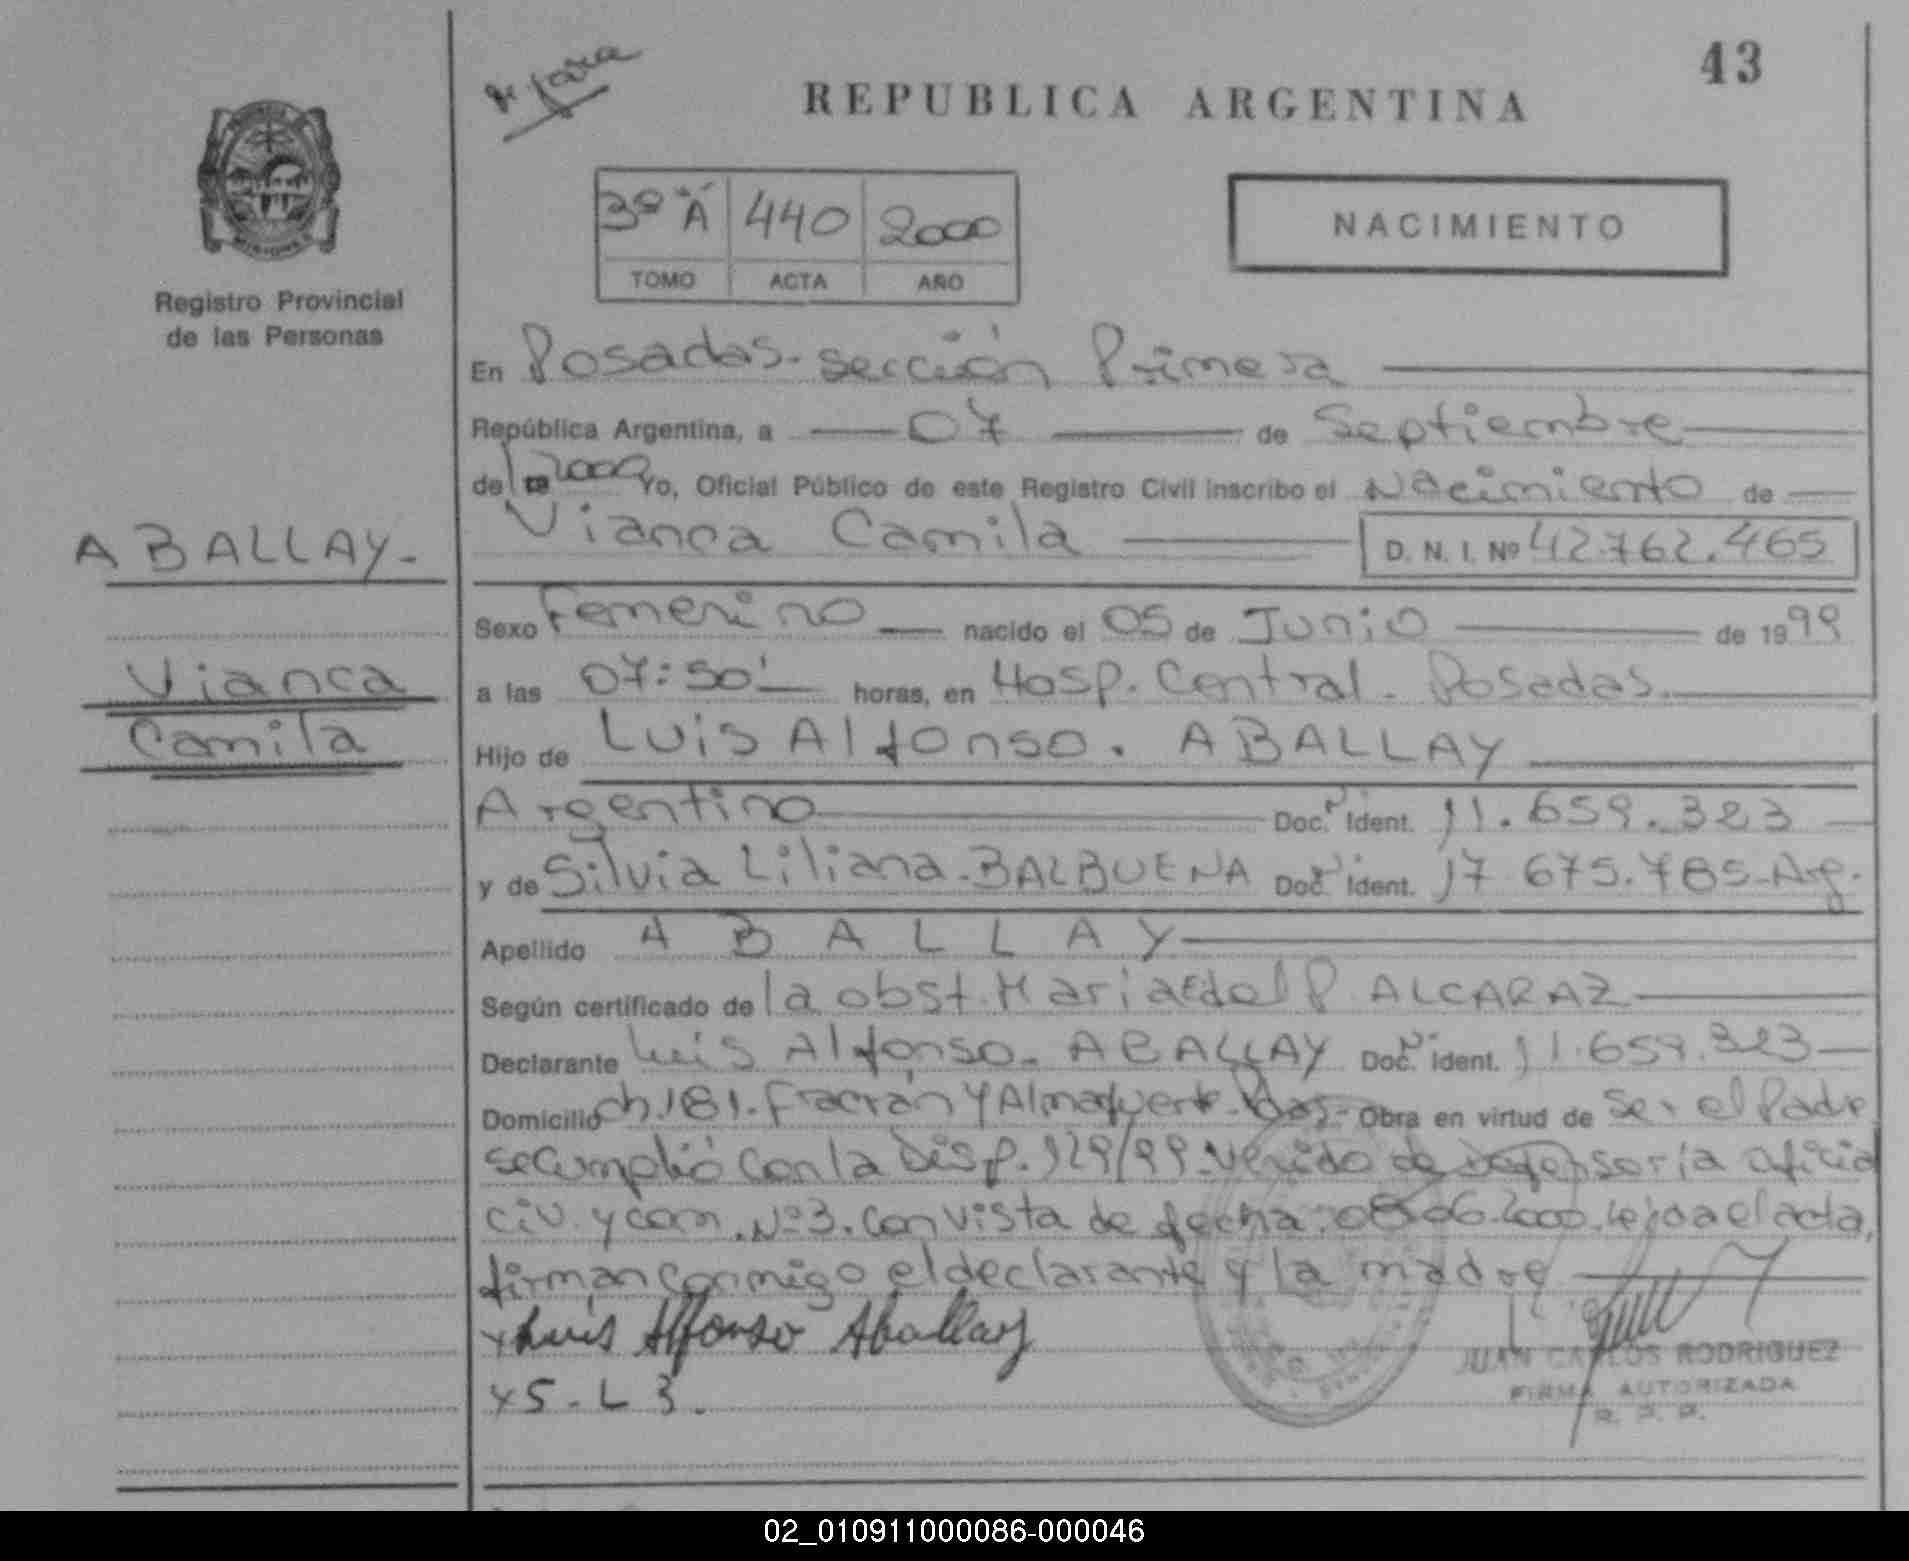 43
REPUBLICA ARGENTINA
3º "A" 440 2000
TOMO ACTA AÑO
NACIMIENTO
Registro Provincial
de las Personas
En Posadas - sección Primera
República Argentina, a 07 de Septiembre
de 2000 Yo, Oficial Público de este Registro Civil inscribo el Nacimiento de
Vianca Camila D. N. I. Nº 42.762.465
ABALLAY-
Vianca
Camila
Sexo Femenino nacido el 05 de Junio de 1999
a las 07:50' horas, en Hosp. Central - Posadas.
Hijo de Luis Alfonso. ABALLAY
Argentino Doc. Ident. 11.659.323
y de Silvia Liliana - BALBUENA Doc. Ident. 17 675.785-Arg.
Apellido ABALLAY
Según certificado de la obst. Maria del P. ALCARAZ
Declarante Luis Alfonso - ABALLAY Doc. Ident. 11.659.323
Domicilio ch. 181. Fracrán y Almafuerte - Pdas - Obra en virtud de Ser el Padre
se cumplió con la Disp. 129/99. Venido de Defensoria oficial
civ. y com. Nº 3. Con vista de fecha: 08-06-2000. Leída el acta,
firman conmigo el declarante y la madre
x Luis Alfonso Aballay
x S. L B.
JUAN CARLOS RODRIGUEZ
FIRMA AUTORIZADA
R. P. P.
02_010911000086-000046